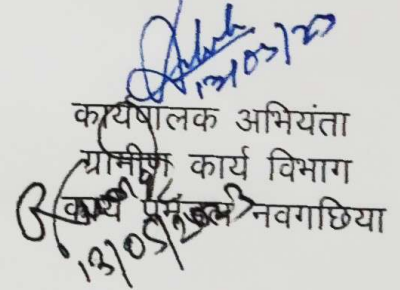 13/03/23
कार्यपालक अभियंता
ग्रामीण कार्य विभाग
कार्य प्रमंडल नवगछिया